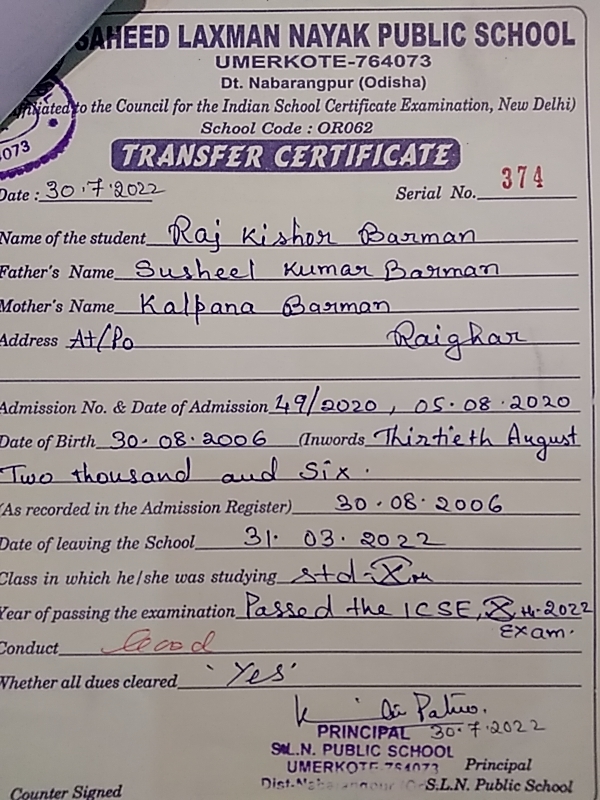 SAHEED LAXMAN NAYAK PUBLIC SCHOOL
UMERKOTE-764073
Dt. Nabarangpur (Odisha)
to the Council for the Indian School Certificate Examination, New Delhi)
School Code : OR062
073
TRANSFER CERTIFICATE
Date : 30.7.2022 Serial No. 374
Name of the student Raj Kishor Barman
Father's Name Susheel Kumar Barman
Mother's Name Kalpana Barman
Address At/Po Raighar
Admission No. & Date of Admission 49/2020, 05.08.2020
Date of Birth 30.08.2006 (Inwords Thirtieth August
Two thousand and Six.
(As recorded in the Admission Register) 30.08.2006
Date of leaving the School 31. 03. 2022
Class in which he/she was studying std-X th
Year of passing the examination Passed the ICSE, X th-2022
Exam.
Conduct Good
Whether all dues cleared 'Yes'
30.7.2022
PRINCIPAL
S.L.N. PUBLIC SCHOOL
UMERKOTE-764073 Principal
S.L.N. Public School
Counter Signed